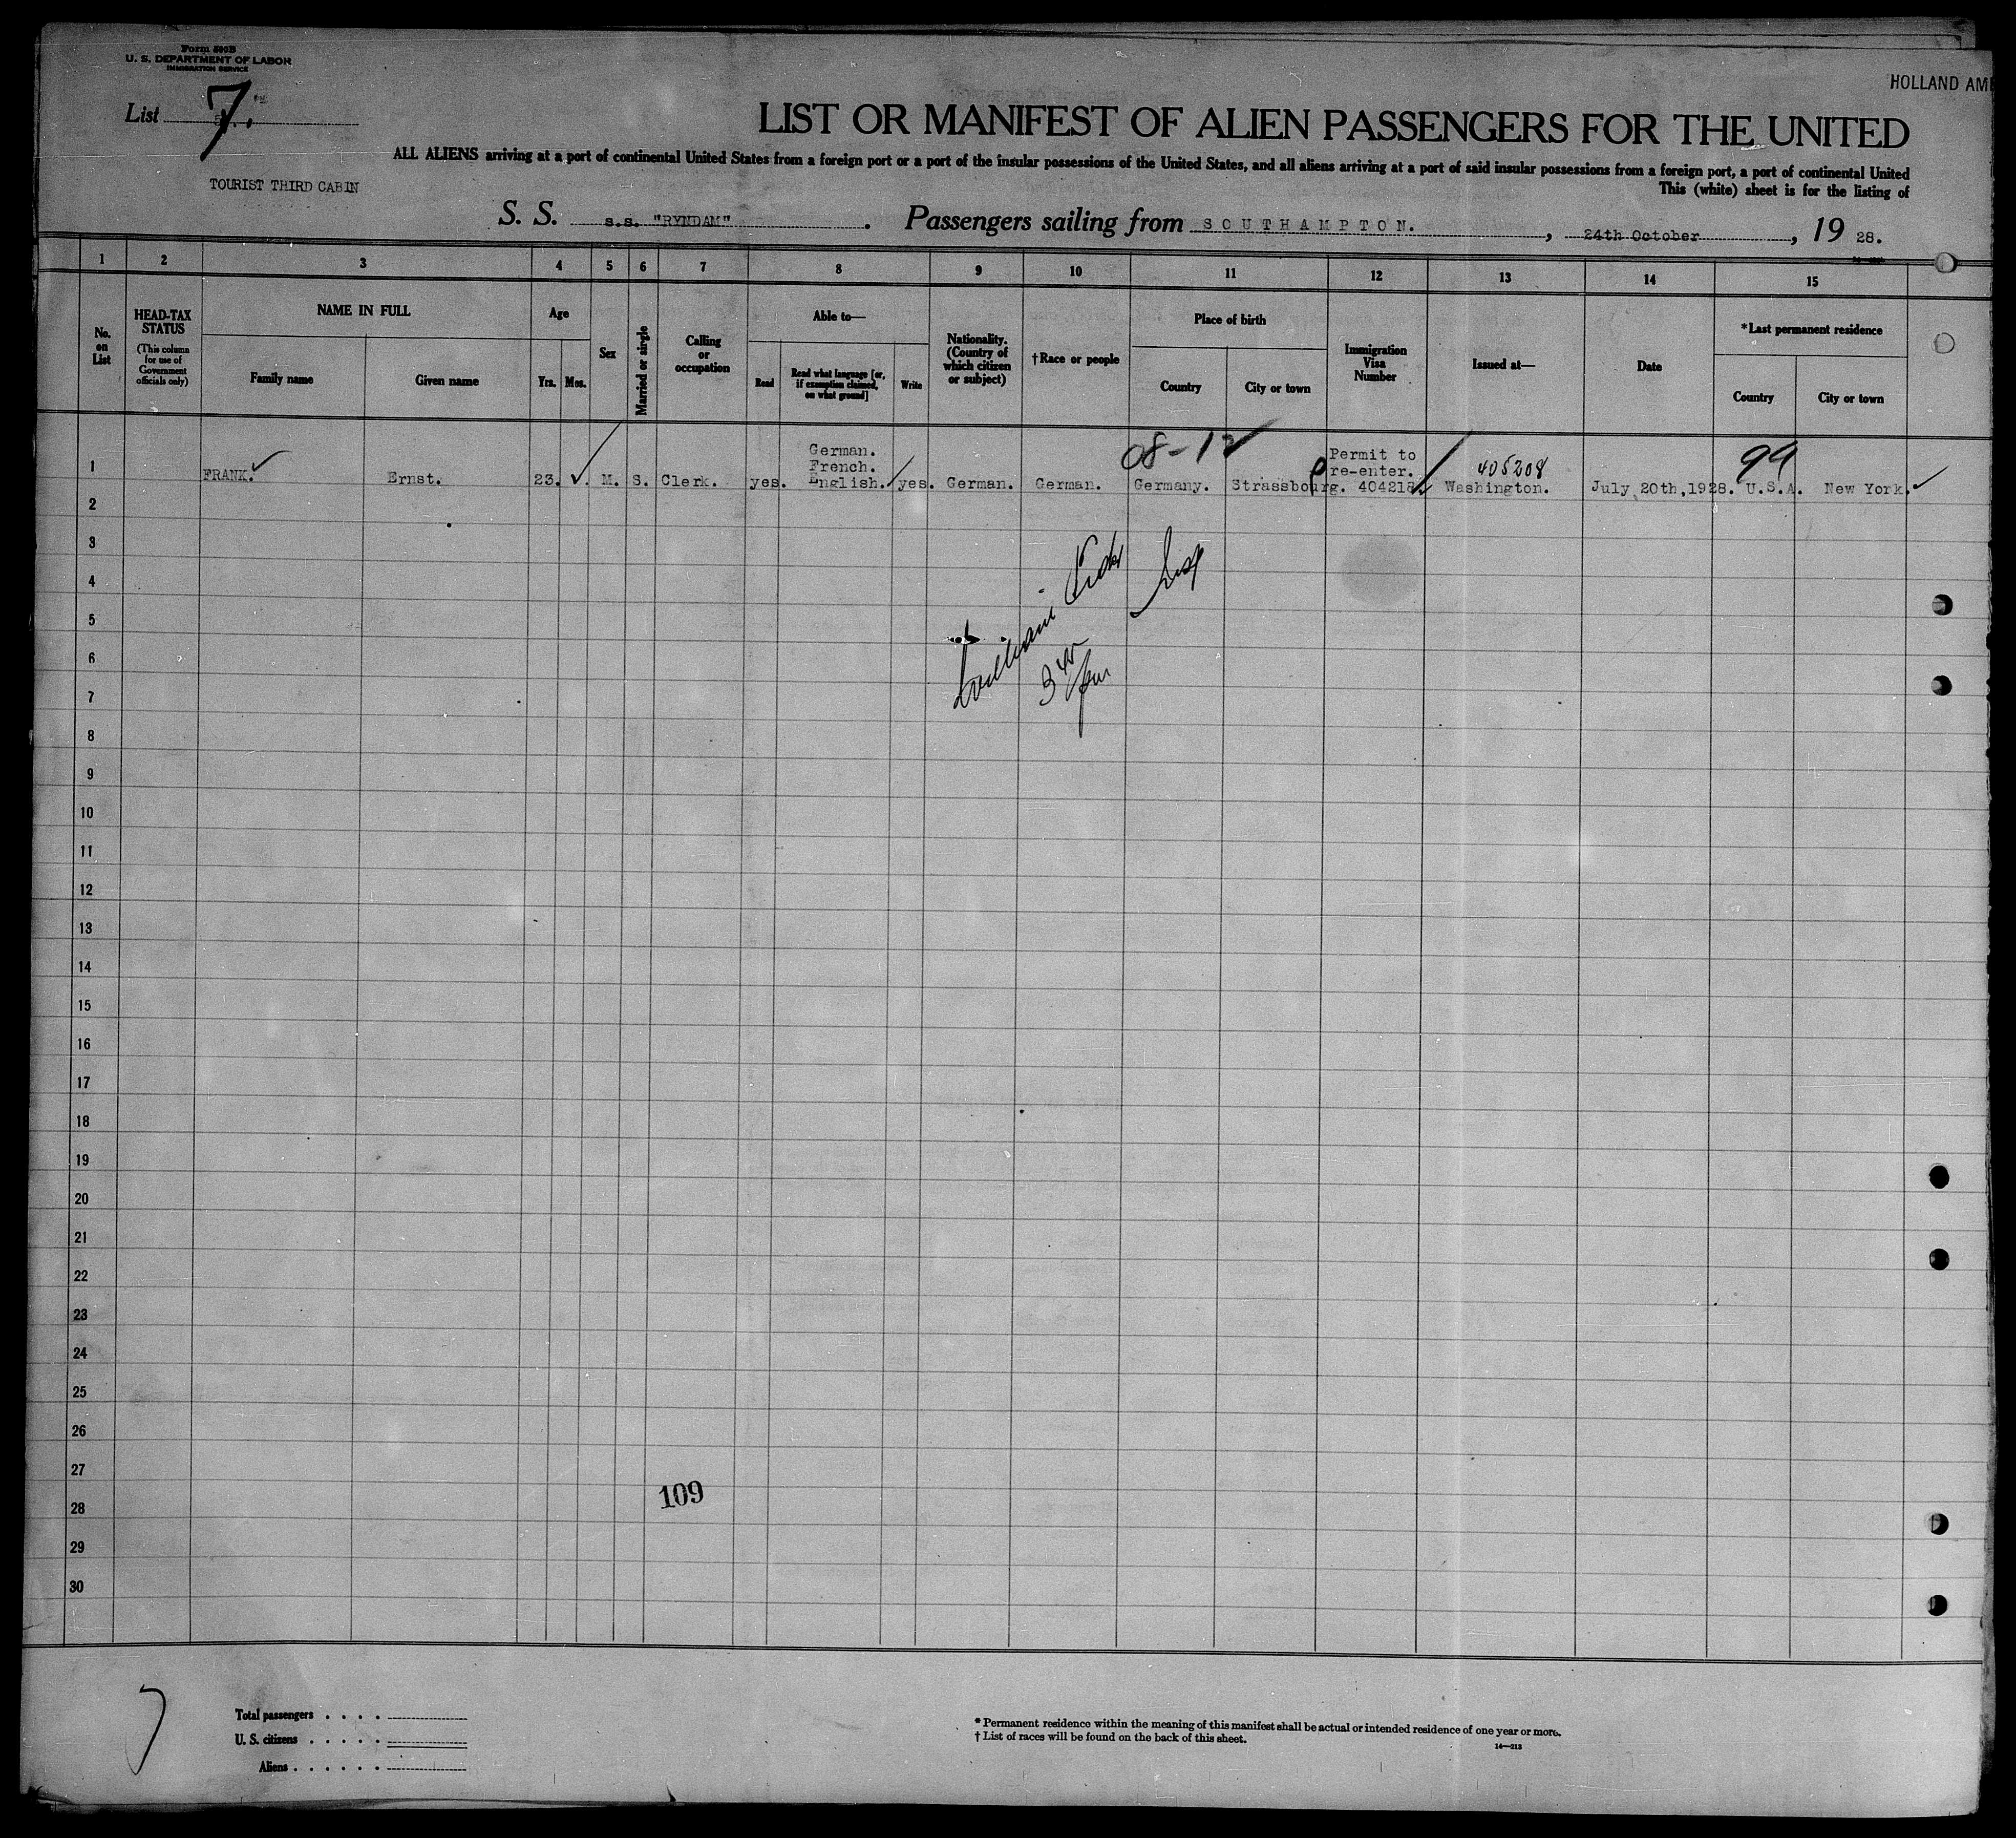 Form 500B
U. S. DEPARTMENT OF LABOR
IMMIGRATION SERVICE
HOLLAND AM
List 7.
LIST OR MANIFEST OF ALIEN PASSENGERS FOR THE UNITED
ALL ALIENS arriving at a port of continental United States from a foreign port or a port of the insular possessions of the United States, and all aliens arriving at a port of said insular possessions from a foreign port, a port of continental United
This (white) sheet is for the listing of
TOURIST THIRD CABIN
S. S. s.s. "RYNDAM". Passengers sailing from SOUTHAMPTON., 24th October, 19 28.
1 2 3 4 5 6 7 8 9 10 11 12 13 14 15
No. on List
HEAD-TAX STATUS
(This column for use of Government officials only)
NAME IN FULL
Family name
Given name
Age
Yrs. Mos.
Sex
Married or single
Calling or occupation
Able to—
Read
Read what language [or, if exemption claimed, on what ground]
Write
Nationality. (Country of which citizen or subject)
†Race or people
Place of birth
Country
City or town
Immigration Visa Number
Issued at—
Date
*Last permanent residence
Country
City or town
08-12
Permit to
99
German.
French.
re-enter.
405208
1 FRANK. Ernst. 23. M. S. Clerk. yes. English. yes. German. German. Germany. Strassbourg. 404218. Washington. July 20th,1928. U.S.A. New York.
2
3
4
5
6
7
8
9
10
11
12
13
14
15
16
17
18
19
20
21
22
23
24
25
26
27
109
28
29
30
7
Total passengers . . . .
U. S. citizens . . . . .
Aliens . . . . . .
* Permanent residence within the meaning of this manifest shall be actual or intended residence of one year or more.
† List of races will be found on the back of this sheet.
14—213